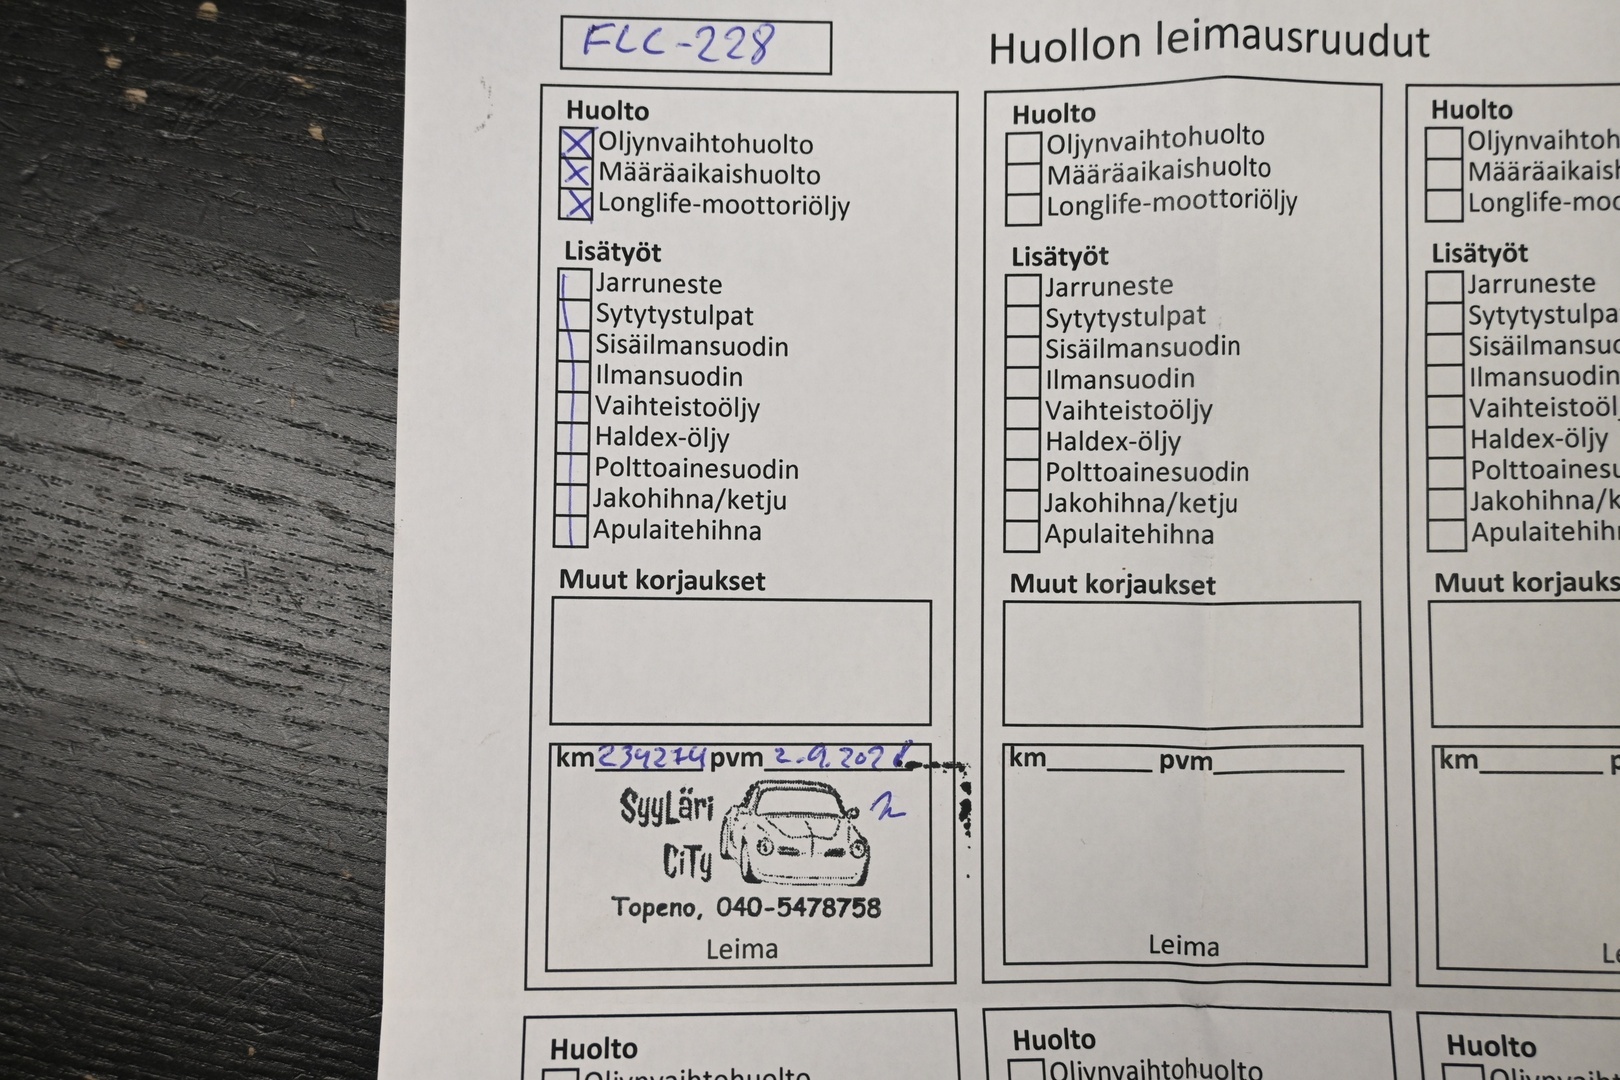 FLC-228
Huollon leimausruudut
Huolto
Oljynvaihtohuolto
Määräaikaishuolto
Longlife-moottoriöljy
Lisätyöt
Jarruneste
Sytytystulpat
Sisäilmansuodin
Ilmansuodin
Vaihteistoöljy
Haldex-öljy
Polttoainesuodin
Jakohihna/ketju
Apulaitehihna
Muut korjaukset
km 234274 pvm
SyyLäri
CiTy
Topeno, 040-5478758
Leima
Huolto
Oljynvaihtohuolto
Määräaikaishuolto
Longlife-moottoriöljy
Lisätyöt
Jarruneste
Sytytystulpat
Sisäilmansuodin
Ilmansuodin
Vaihteistoöljy
Haldex-öljy
Polttoainesuodin
Jakohihna/ketju
Apulaitehihna
Muut korjaukset
km pvm
Leima
Huolto
Oljynvaihtoh
Määräaikaish
Longlife-moo
Lisätyöt
Jarruneste
Sytytystulpa
Sisäilmansuo
Ilmansuodin
Vaihteistoöl
Haldex-öljy
Polttoainesu
Jakohihna/k
Apulaitehih
Muut korjauks
km p
Le
Huolto
Oljynvaihtohuolto
Huolto
Oljynvaihtohuolto
Huolto